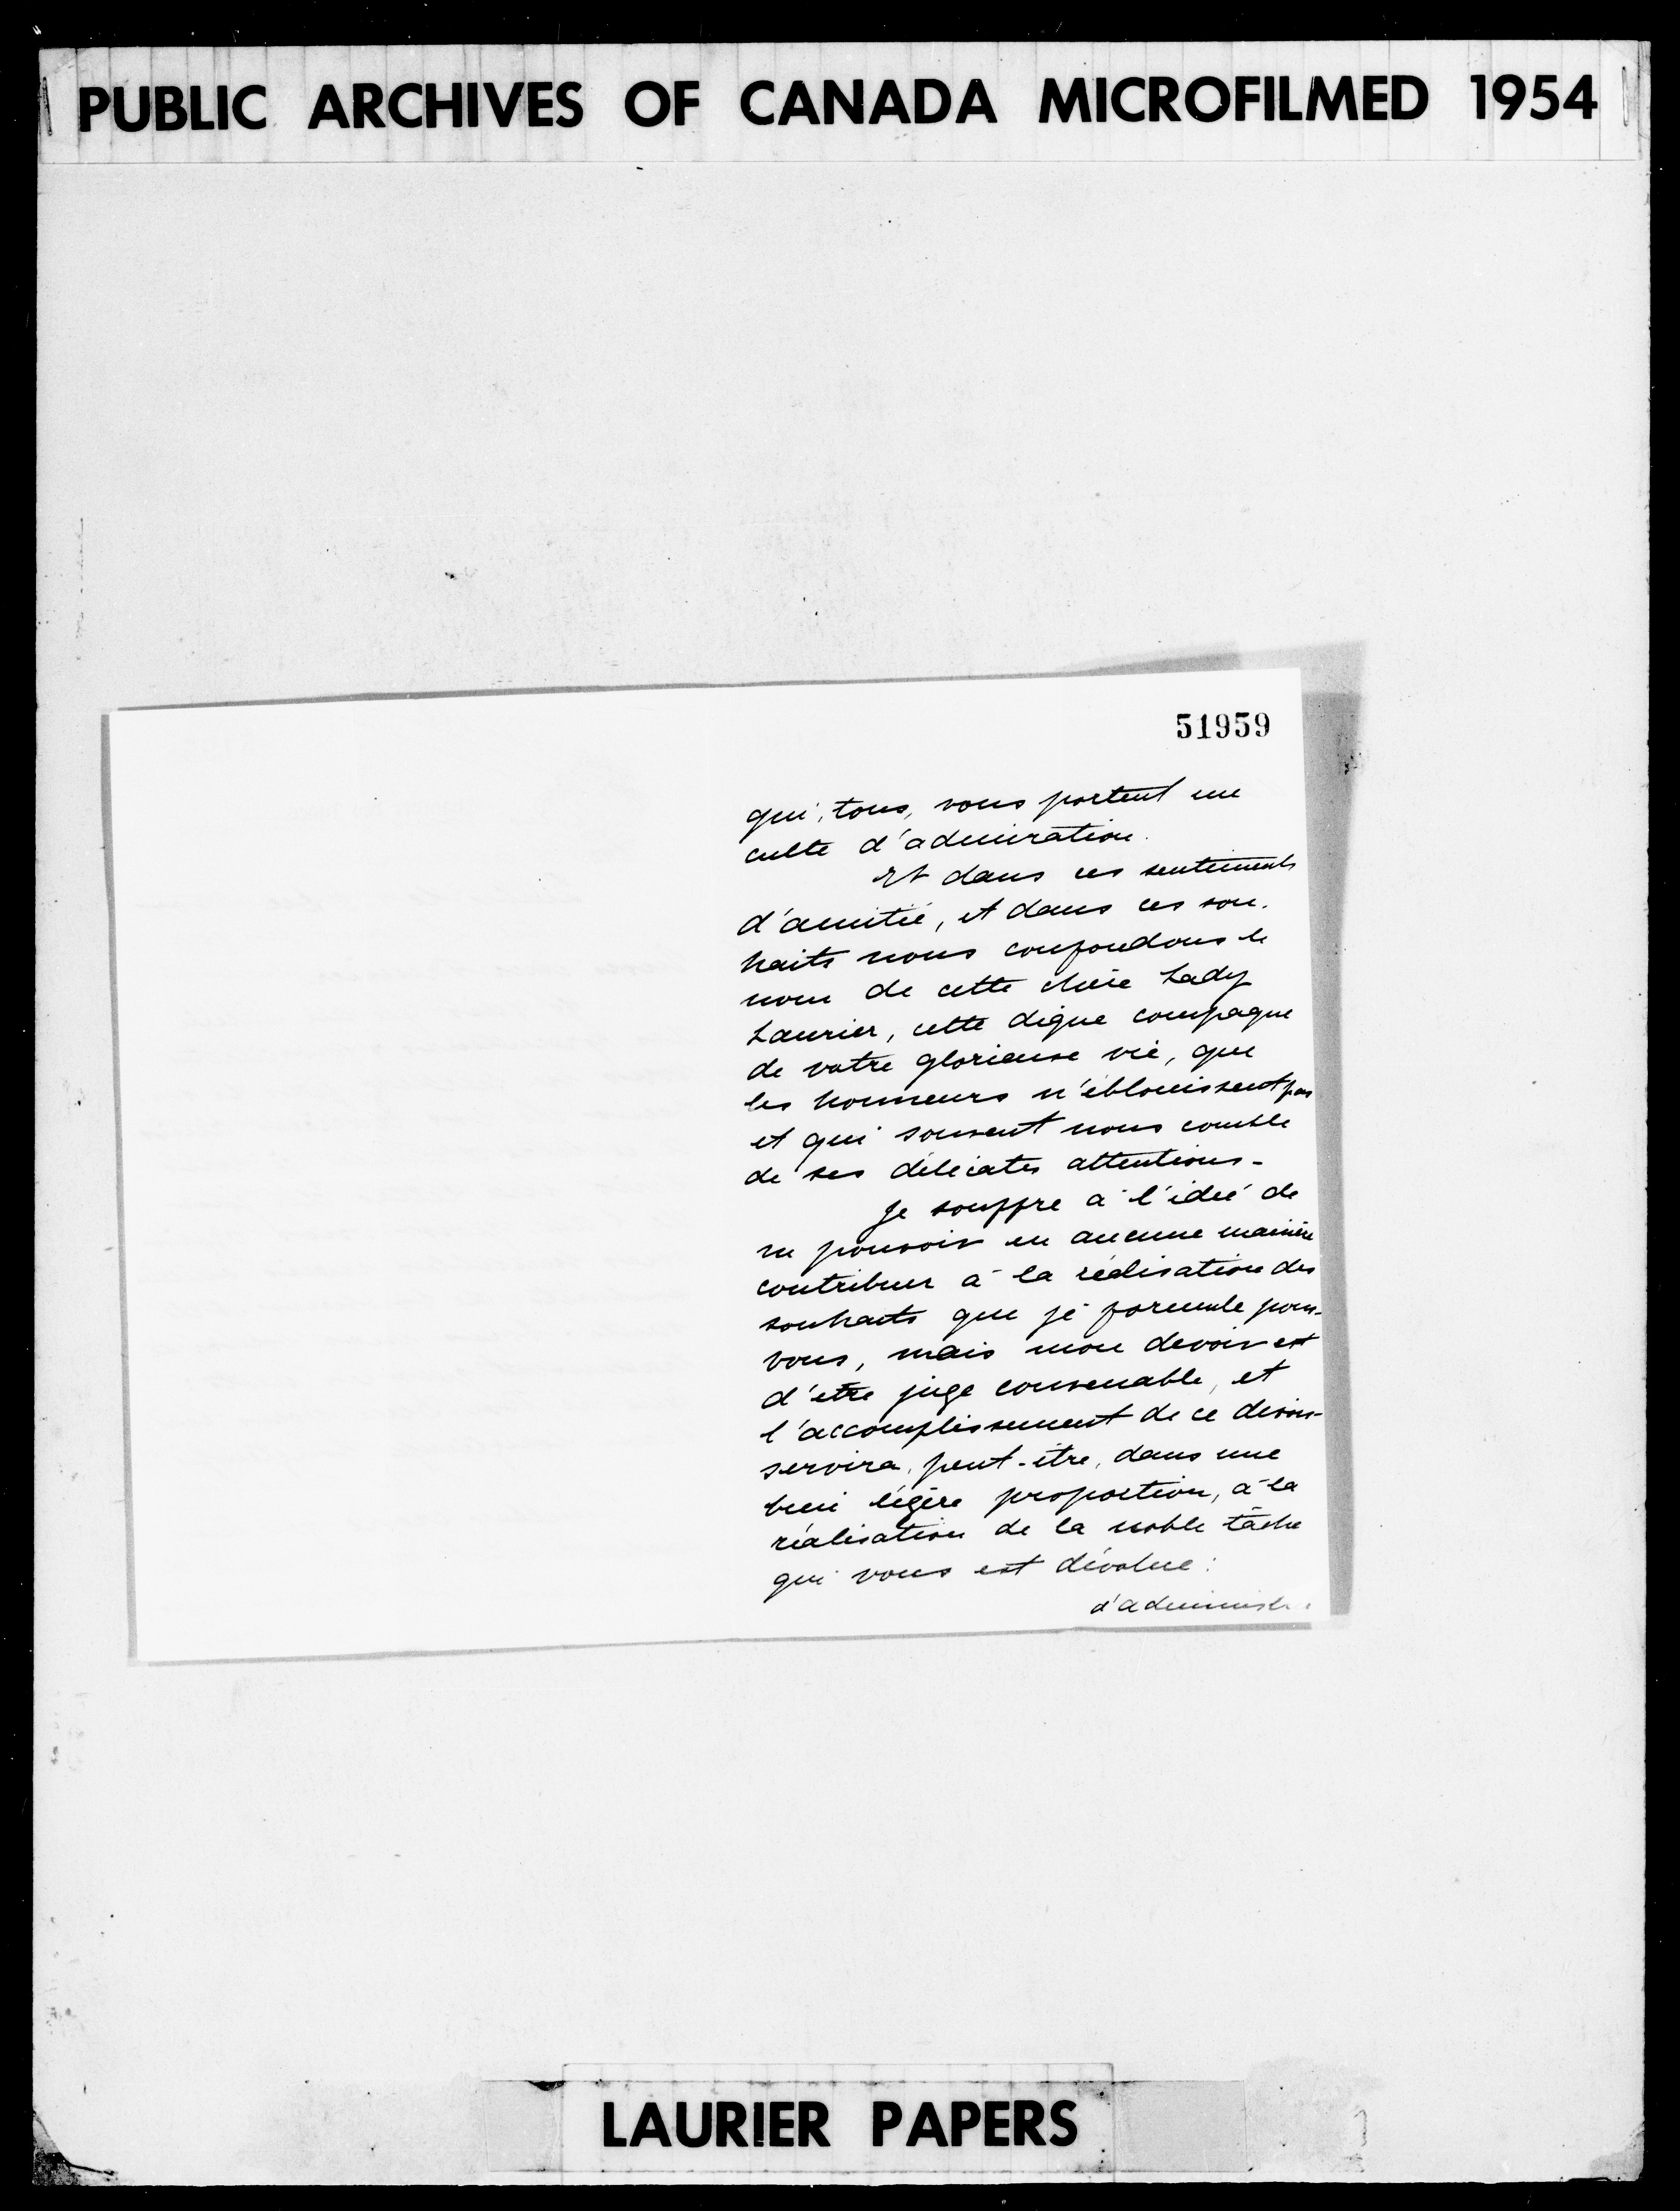 PUBLIC ARCHIVES OF CANADA MICROFILMED 1954
51959
qui, tous, vous portent un
culte d'admiration.
Et dans ces sentiments
d'amitié, et dans ces sou-
haits nous confondons le
nom de cette chère Lady
Laurier, cette digne compagne
de votre glorieuse vie, que
les honneurs n'éblouissent pas
et qui souvent nous comble
de ses délicates attentions -
Je souffre à l'idée de
ne pouvoir en aucune manière
contribuer à la réalisation des
souhaits que je formule pour
vous, mais mon devoir est
d'être juge convenable, et
l'accomplissement de ce devoir
servira, peut-être, dans une
bien légère proportion, à la
réalisation de la noble tâche
qui vous est dévolue :
LAURIER PAPERS